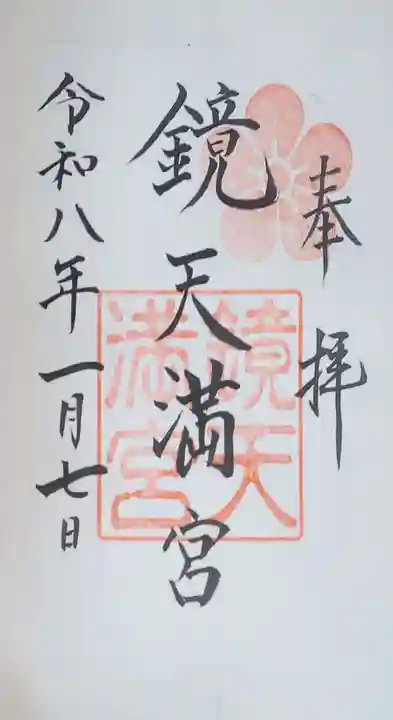 奉拝
鏡天満宮
鏡天
満宮
令和八年一月七日